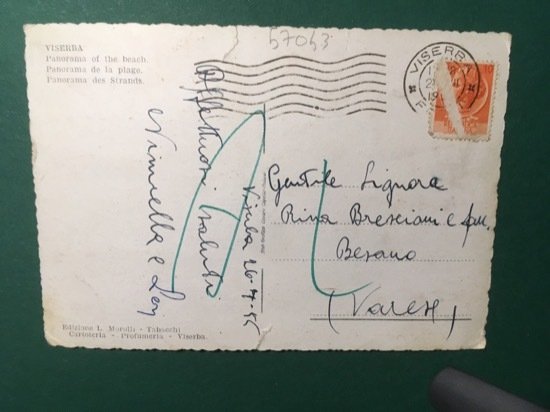 VISERBA
Panorama of the beach.
Panorama de la plage.
Panorama des Strandes.
57053
VISERBA
Affettuosi saluti
Ninnella e
Viserba 26-7-55
Gentile Signora
Rina Bresciani e fam.
Besano
(Varese)
Edizione L. Morolli - Tabacchi
Cartoleria - Profumeria - Viserba.